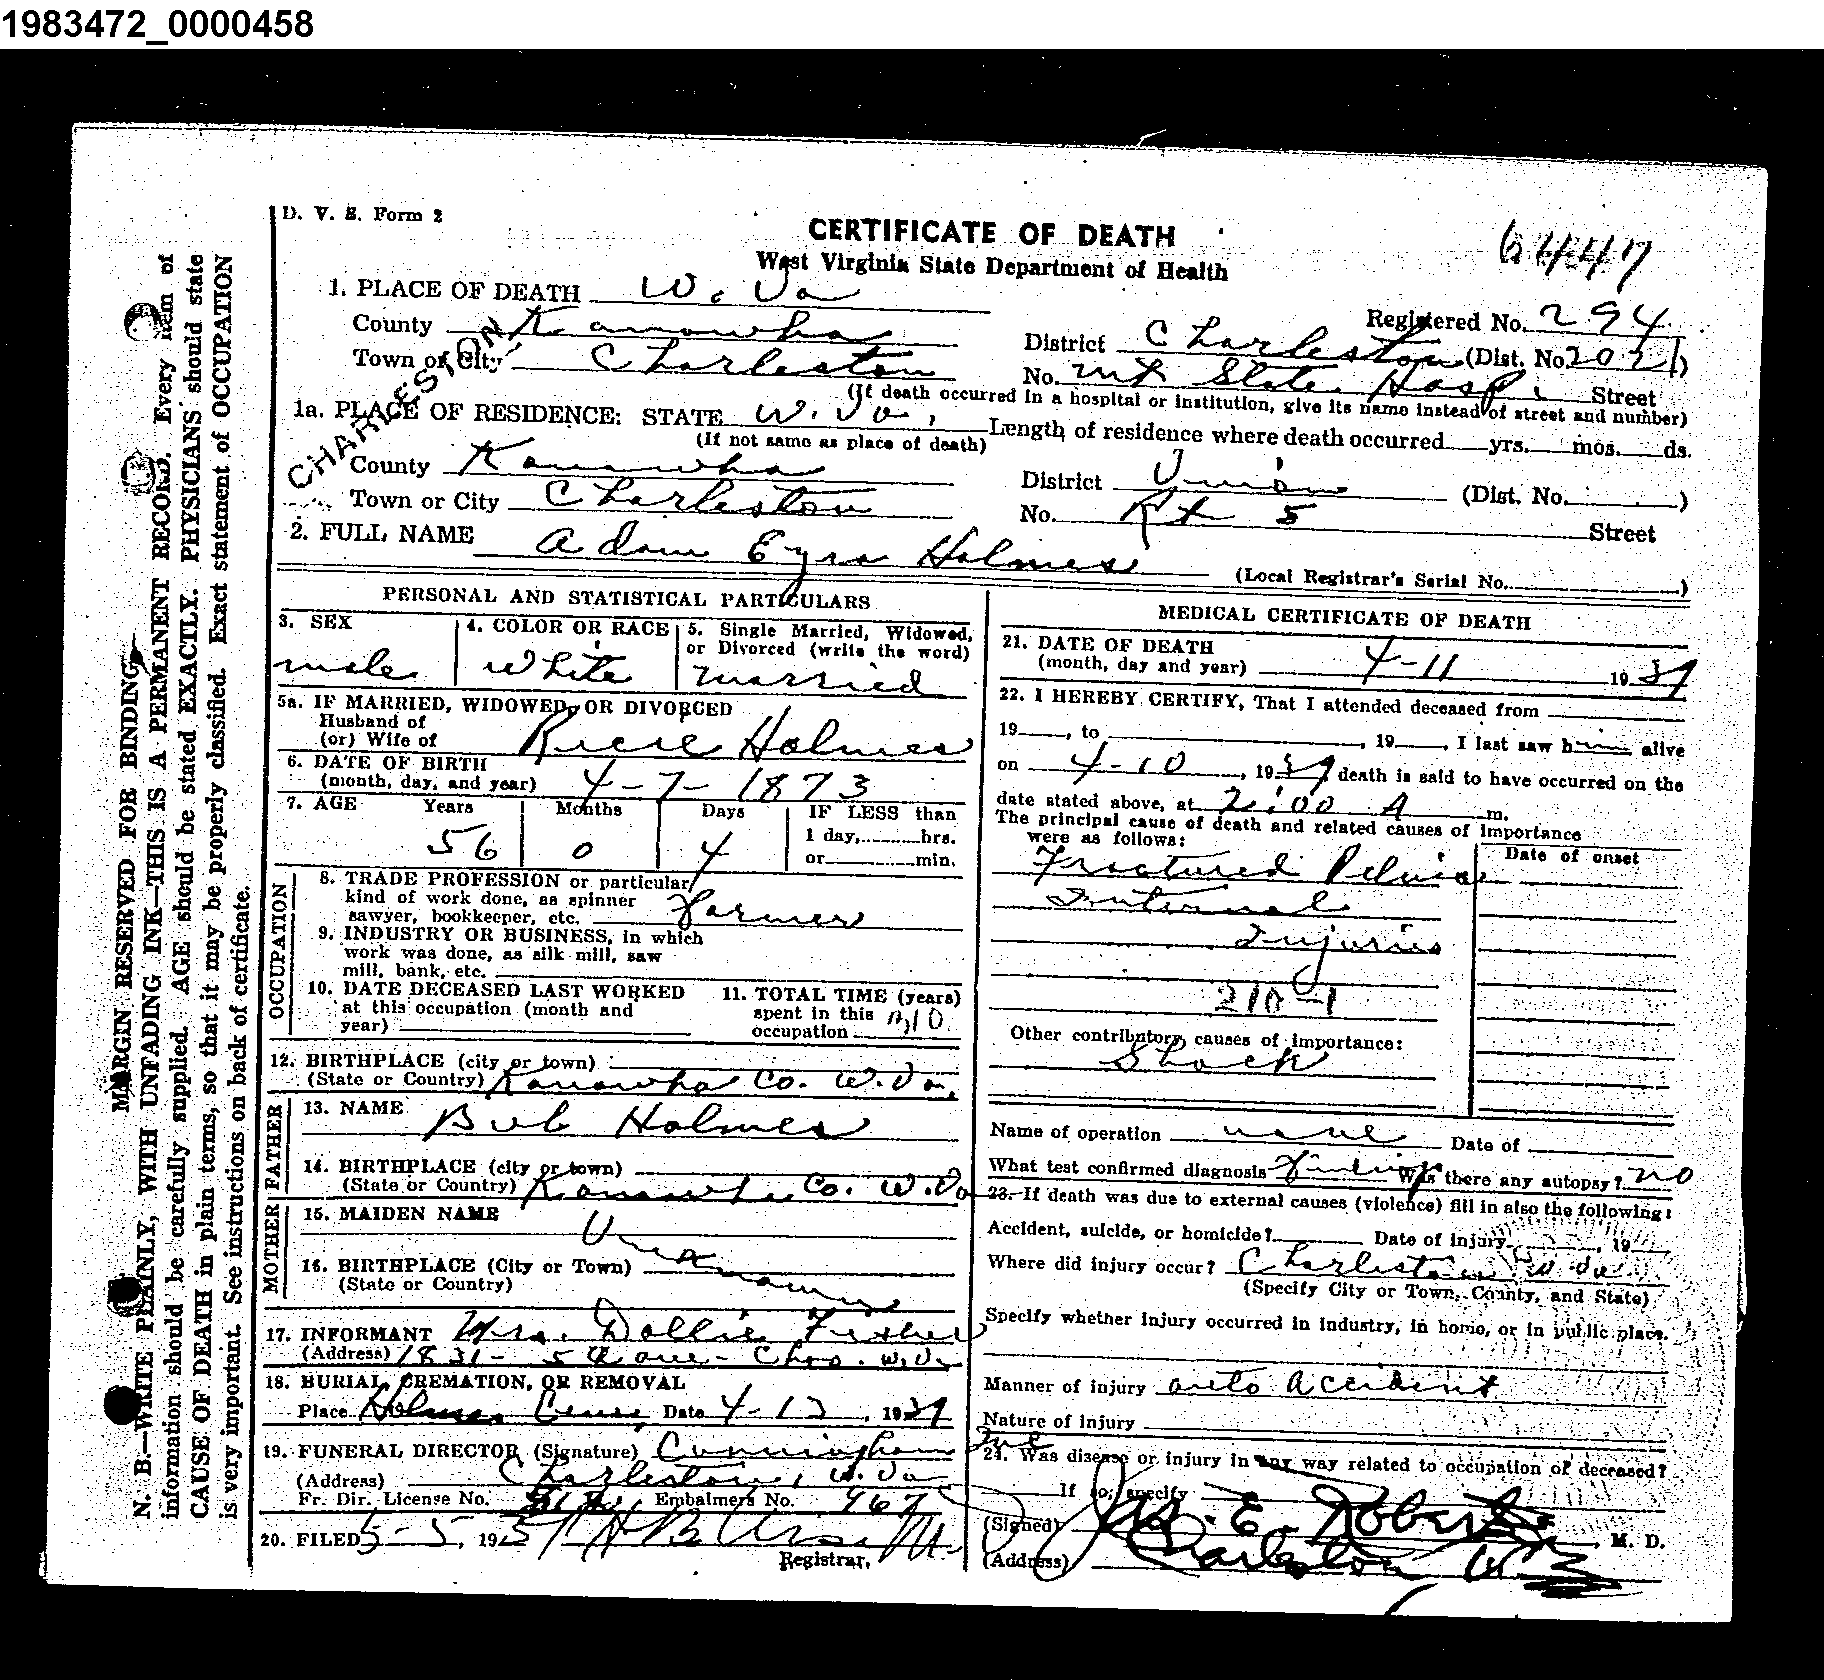 1983472_0000458
D. V. S. Form 2
CERTIFICATE OF DEATH
West Virginia State Department of Health
6447
1. PLACE OF DEATH W. Va
Registered No. 294
County Kanawha
District Charleston (Dist. No. 2021)
Town or City Charleston
No. Mt State Hosp. Street
(If death occurred in a hospital or institution, give its name instead of street and number)
CHARLESTON
1a. PLACE OF RESIDENCE: STATE W. Va,
(If not same as place of death)
Length of residence where death occurred yrs. mos. ds.
County Kanawha
District Union (Dist. No. )
Town or City Charleston
No. Rt 5 Street
2. FULL NAME Adam Ezra Holmes
(Local Registrar's Serial No. )
PERSONAL AND STATISTICAL PARTICULARS
3. SEX
male
4. COLOR OR RACE
White
5. Single Married, Widowed,
or Divorced (write the word)
Married
5a. IF MARRIED, WIDOWED, OR DIVORCED
Husband of
(or) Wife of Holmes
6. DATE OF BIRTH
(month, day, and year) 4-7-1873
7. AGE Years Months Days IF LESS than
56 0 4
1 day, hrs.
or min.
OCCUPATION
8. TRADE PROFESSION or particular
kind of work done, as spinner
sawyer, bookkeeper, etc. Farmer
9. INDUSTRY OR BUSINESS, in which
work was done, as silk mill, saw
mill, bank, etc.
10. DATE DECEASED LAST WORKED
at this occupation (month and
year)
11. TOTAL TIME (years)
spent in this
occupation
12. BIRTHPLACE (city or town)
(State or Country) Kanawha Co. W. Va.
FATHER
13. NAME Bub Holmes
14. BIRTHPLACE (city or town)
(State or Country) Kanawha Co. W. Va
MOTHER
15. MAIDEN NAME
Unknown
16. BIRTHPLACE (City or Town)
(State or Country)
17. INFORMANT Mrs. Dollie Fisher
(Address) 1831- 5th ave- Chas. W. Va
18. BURIAL, CREMATION, OR REMOVAL
Place Holmes Cem, Date 4-12, 1939
19. FUNERAL DIRECTOR (Signature) Cunningham
(Address) Charleston, W. Va
Fr. Dir. License No. Embalmers No. 967
20. FILED 5-5, 1939
Registrar.
MEDICAL CERTIFICATE OF DEATH
21. DATE OF DEATH
(month, day and year) 4-11 1939
22. I HEREBY CERTIFY, That I attended deceased from
19 , to , 19 , I last saw him alive
on 4-10, 1939 death is said to have occurred on the
date stated above, at 2:00 A m.
The principal cause of death and related causes of importance
were as follows:
Date of onset
Fractured Pelvis
Internal
Injuries
210-1
Other contributory causes of importance:
Shock
Name of operation none Date of
What test confirmed diagnosis Findings Was there any autopsy? no
23. If death was due to external causes (violence) fill in also the following:
Accident, suicide, or homicide? Date of injury , 19
Where did injury occur? Charleston W. Va
(Specify City or Town, County, and State)
Specify whether injury occurred in industry, in home, or in public place.
Manner of injury auto Accident
Nature of injury
24. Was disease or injury in any way related to occupation of deceased?
If so, specify
(Signed) E. Roberts M. D.
(Address) Charleston W
MARGIN RESERVED FOR BINDING
N. B.—WRITE PLAINLY, WITH UNFADING INK—THIS IS A PERMANENT RECORD. Every item of
information should be carefully supplied. AGE should be stated EXACTLY. PHYSICIANS should state
CAUSE OF DEATH in plain terms, so that it may be properly classified. Exact statement of OCCUPATION
is very important. See instructions on back of certificate.